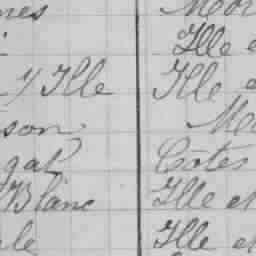 nes Mor
Ille e
y Ille Ille e
son Mo
gat Côtes
Blanc Ille et
le Ille et